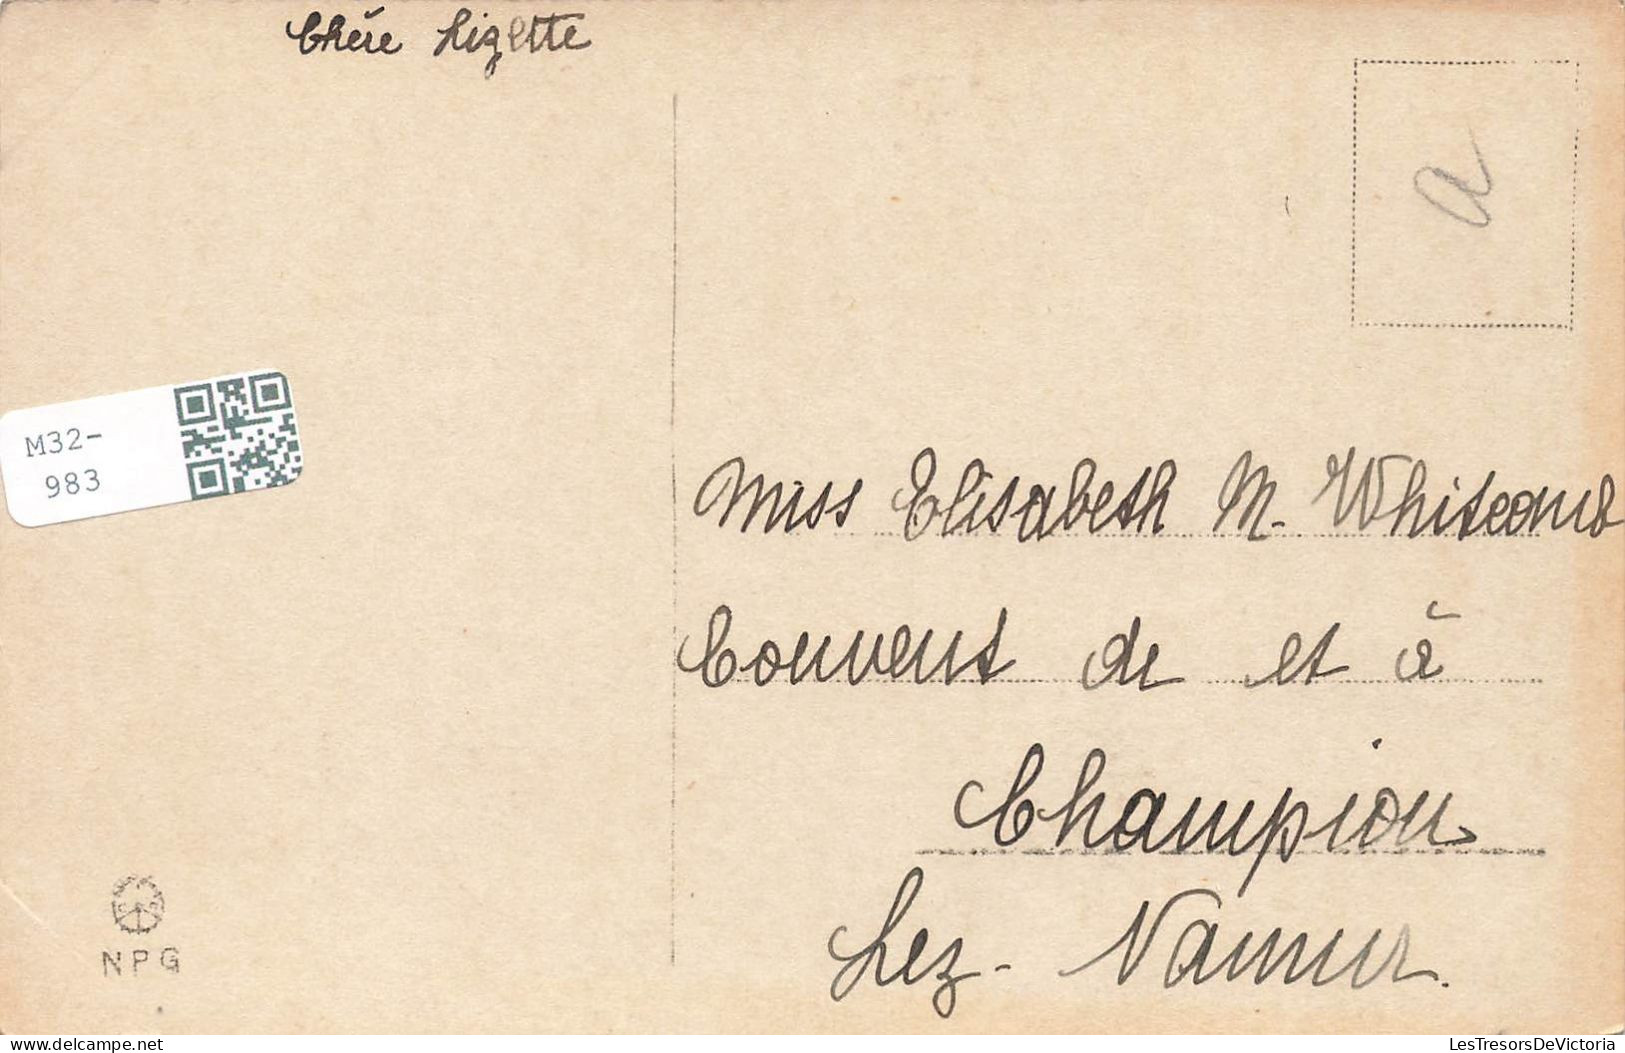 Chère Lizette
a
M32-
983
Miss Elisabeth M. Whitcomb
Couvent de et à
Champion
Lez-Namur.
NPG
delcampe.net
LesTresorsDeVictoria